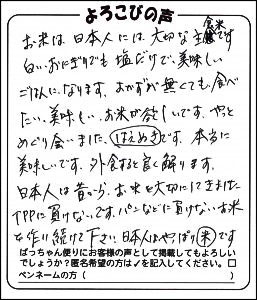 よろこびの声
お米は、日本人には、大切な主食米です
白いおにぎりでも塩だけで、美味しい
ごはんになります。おかずが無くても、食べ
たい、美味しい、お米が欲しいです。やっと
めぐり会いました、はえぬきです。本当に
美味しいです。外食すると良く解ります。
日本人は昔から、お米を大切にしてきました
TPPに負けないです。パンなどに負けないお米
を作り続けて下さい。日本人はやっぱり米です
ばっちゃん便りにお客様の声として掲載してもよろしい
でしょうか?匿名希望の方は✓を記入してください。□
ペンネームの方( )